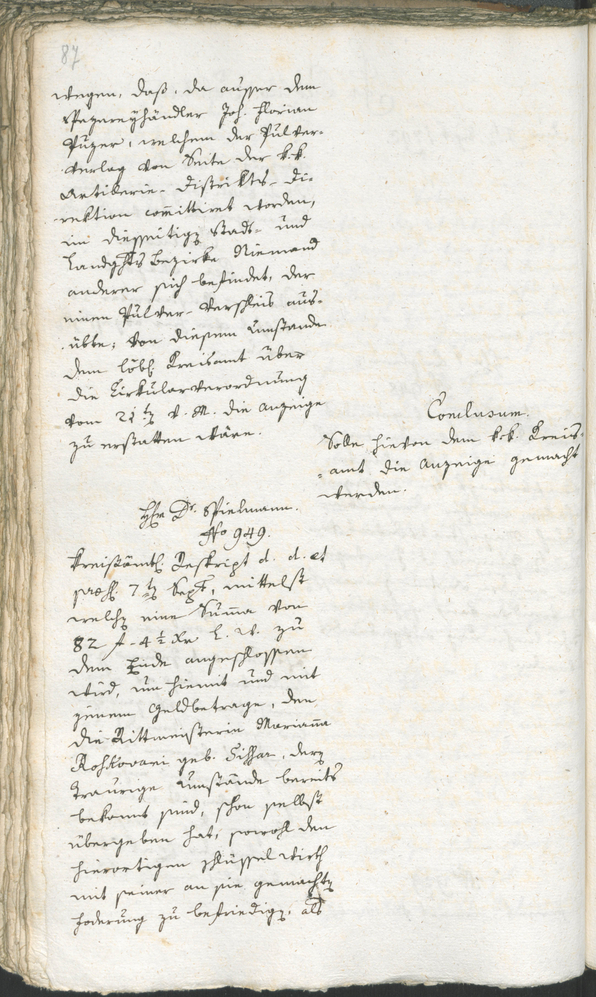 87
wegen, daß, da ausser dem
Spezereyhändler Joh. Florian
Puzer, welchem der Pulver-
verlag von Seite der k. k.
Artillerie-Distrikts-Di-
rektion com̅ittiret worden,
im diesseitigen Stadt- und
Landghts Bezirke Niemand
anderer sich befindet, der
einen Pulver-Verschleis aus-
übte; von diesem Umstande
dem löbl. Kreisamt über
die Zirkularverordnung
vom 21ten v. M. die Anzeige
zu erstatten wäre.
Conclusum.
Solle hievon dem k. k. Kreis-
amt die Anzeige gemacht
werden.
Hr. Dr. Spielmann.
No 949.
Kreisämtl. Reskript d. d. et
praes. 7ten Sept, mittelst
welchen eine Sum̅a von
82 f - 4 1/2 Xr L. W. zu
dem Ende angeschlossen
wird, um hiemit und mit
jenem Geldbetrage, den
die Rittmeisterin Mariana
geb. , deren
traurige Umstände bereits
bekannt sind, schon selbst
übergeben hat, sowohl den
hierortigen Schlüsselwirth
mit seiner an sie gemachten
Foderung zu befriedigen, als